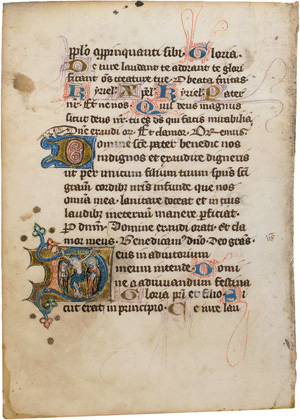 ipso appropinquanti sibi. Gloria
De iure laudant te adorant te glori
ficant oēs creature tue. O beata trinitas
Kyriel. Xpel. Kyriel. Pater
nr. Et ne nos. Quis deus magnus
sicut deus nr. tu es ds qui facis mirabilia.
Dne exaudi or. Et clamor. Oremus.
Domine scē pater benedic nos
indignos et exaudire digneris
per unicum filium tuum spūs scī
gram cordib; nris infunde que nos
omia mea. sanitate doceat et in tuis
laudib; in eternam manere pficiat.
P dnm. Domine exaudi orati. et cla
mor meus. Benedicam dno. Deo gras.
Deus in adiutorium
meum intende. Domi
ne ad adiuvandum festina
Gloria pri et filio. Si
cut erat in principio. Te iure lau